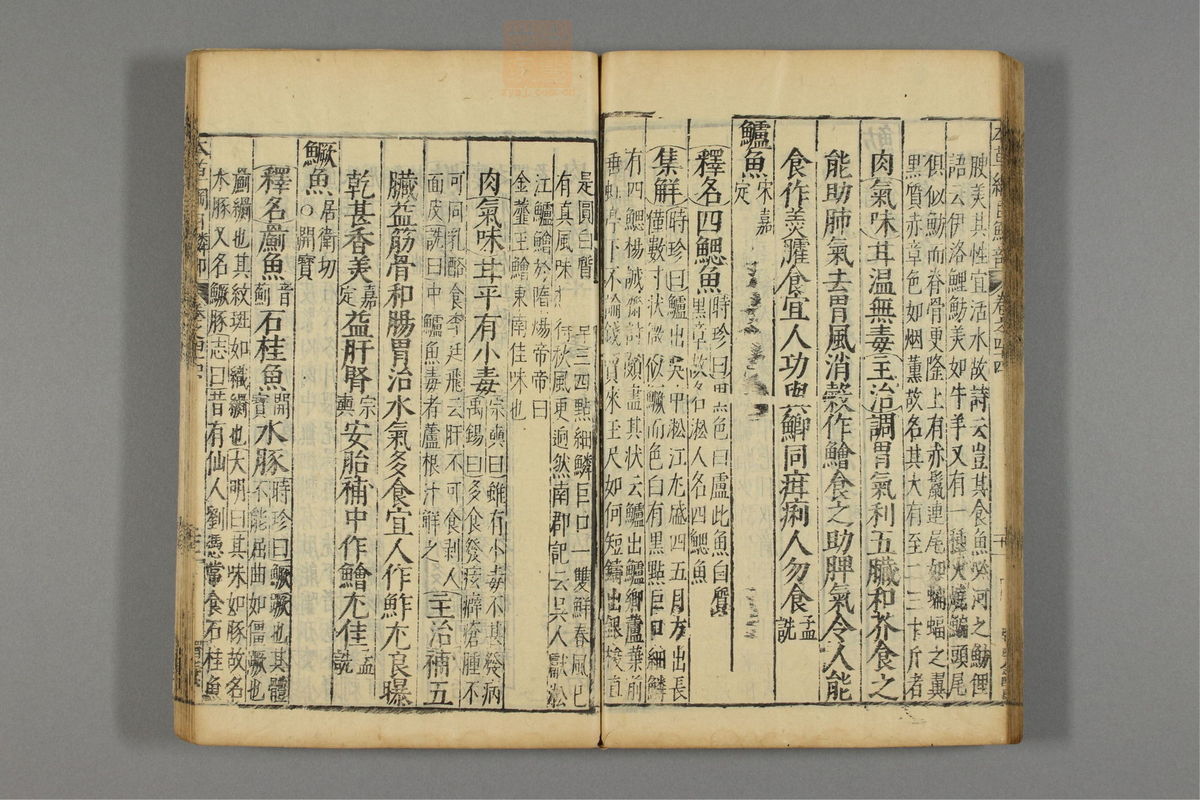 腴美其性宜活水故詩云豈其食魚必河之魴俚
語云伊洛鯉魴美如牛羊又有一種火燒鯿頭尾
俱似魴而脊骨更隆上有赤鬣連尾如蝙蝠之翼
黑質赤章色如烟薰故名其大有至二三十斤者
肉氣味甘温無毒主治調胃氣利五臟和芥食之
能助肺氣去胃風消穀作鱠食之助脾氣令人能
食作羮臛食宜人功與鯽同疳痢人勿食孟詵
鱸魚宋嘉定
釋名四鰓魚時珍曰黑色曰盧此魚白質
黑章故名淞人名四鰓魚
集解時珍曰鱸出吳中淞江尤盛四五月方出長
僅數寸狀微似鱖而色白有黑點巨口細鱗
有四鰓楊誠齋詩頗盡其狀云鱸出鱸鄉蘆葉前
垂虹亭下不論錢買來玉尺如何短鑄出銀梭直
是圓白質
黑三四點細鱗巨口一雙鮮春風已
有真風味
待秋風更迥然南郡記云吳人獻淞
江鱸鱠於隋煬帝帝曰
金虀玉鱠東南佳味也
肉氣味甘平有小毒宗奭曰雖有小毒不甚發病
禹錫曰多食發痃癖瘡腫不
可同乳酪食李廷飛云肝不可食剥人
面皮詵曰中鱸魚毒者蘆根汁解之
主治補五
臟益筋骨和腸胃治水氣多食宜人作鮓尤良曝
乾甚香美嘉定益肝腎宗奭安胎補中作鱠尤佳孟詵
鱖魚居衛切○開寶
釋名罽魚音薊石桂魚開寶水豚時珍曰鱖蹶也其體
不能屈曲如僵蹶也
罽繝也其紋斑如織繝也大明曰其味如豚故名
水豚又名鱖豚志曰昔有仙人劉憑常食石桂魚